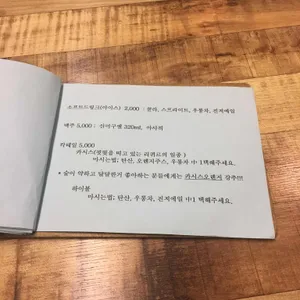 소프트드링크(아이스) 2,000 : 콜라, 스프라이트, 우롱차, 진저에일
맥주 5,000 : 산미구엘 320ml, 아사히
칵테일 5,000
카시스(
마시는법; 탄산, 오렌지주스, 우롱차 中 1택해주세요.
* 술이 약하고 달달한거 좋아하는 분들에게는 카시스오렌지 강추!!!!
하이볼
마시는법; 탄산, 우롱차, 진저에일 中1 택해주세요.